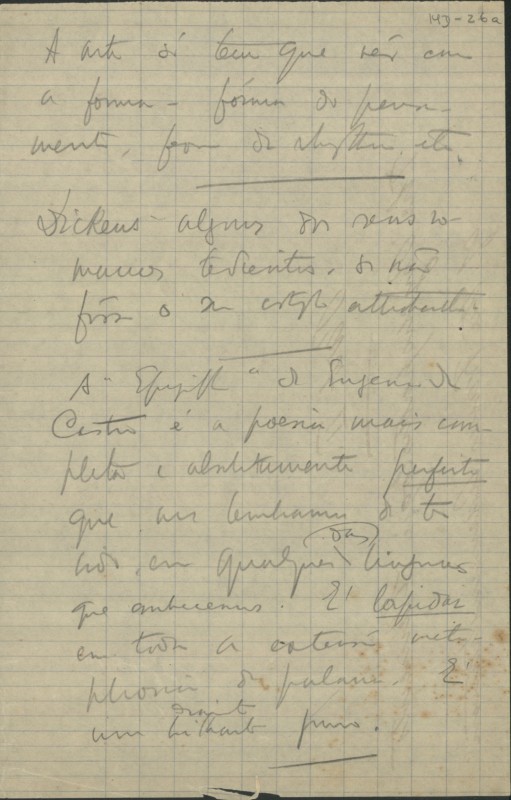 14D-26a
A arte só tem que vêr com
a forma - fórma do pensa-
mento, forma de rhythmo, etc.
Dickens - alguns dos seus ro-
mances tediento, se não
fôra o seu estylo
A "Epigraphe" de Eugenio de
Castro é a poesia mais com-
pleta e absolutamente perfeita
que nos lembramos de ter
lido, em qualquer das linguas
que conhecemos. É lapidar
em toda a extensão meta-
phorica da palavra. É
um brilhante puro.